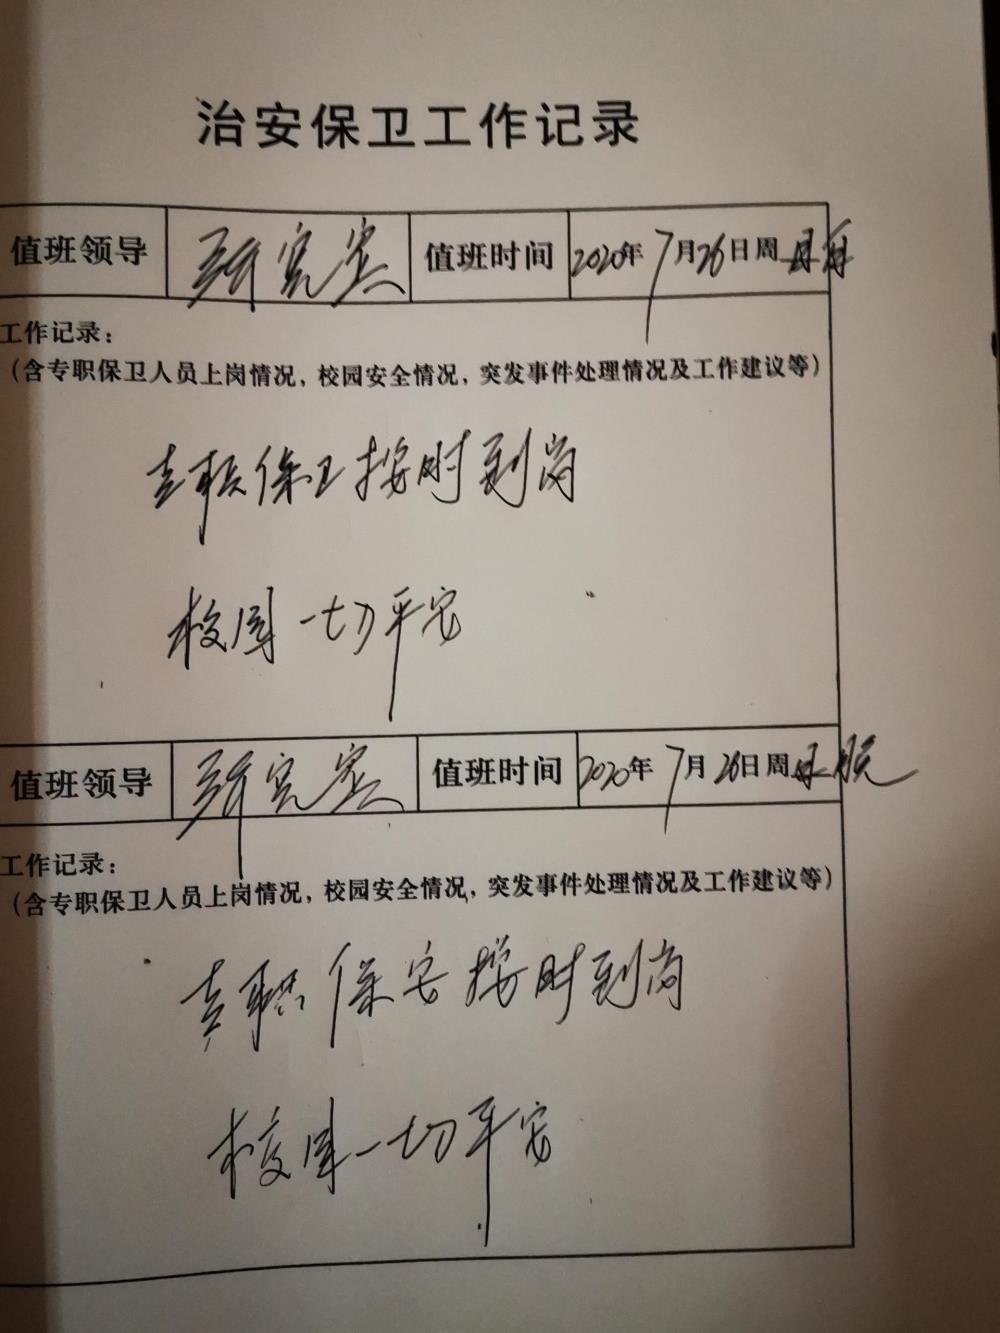 治安保卫工作记录
值班领导 值班时间 2020年7月26日周日
工作记录：
（含专职保卫人员上岗情况，校园安全情况，突发事件处理情况及工作建议等）
专职保卫按时到岗
校园一切平安
值班领导 值班时间 2020年7月26日周日晚
工作记录：
（含专职保卫人员上岗情况，校园安全情况，突发事件处理情况及工作建议等）
专职保安按时到岗
校园一切平安